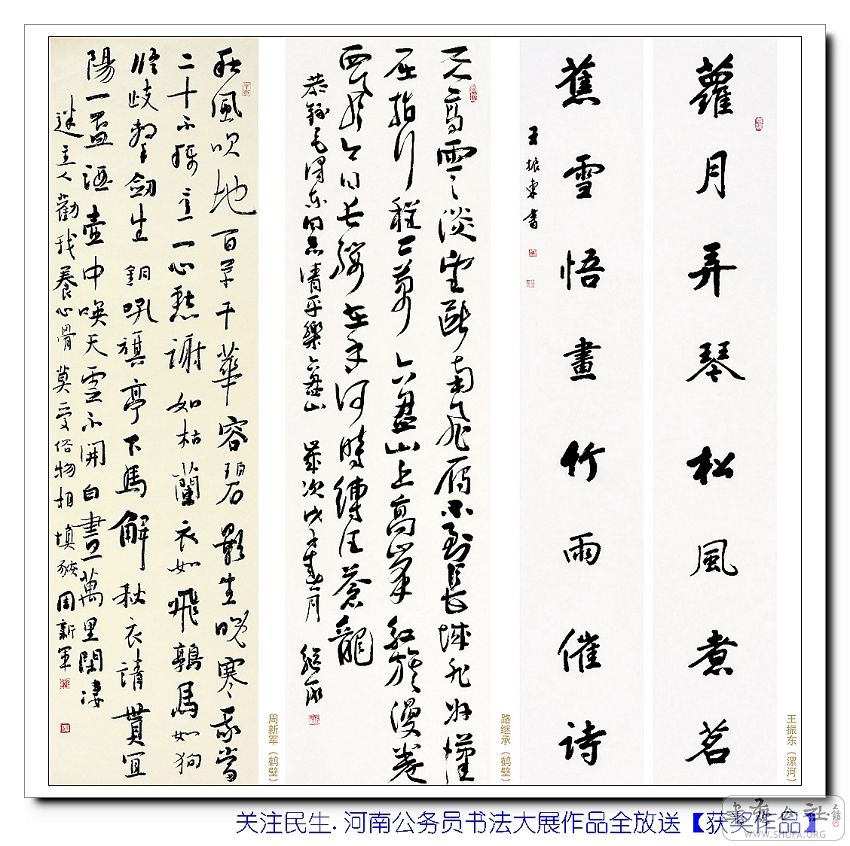 蘿月弄琴松風煮茗
蕉雪悟畫竹雨催詩
王振東書
王振东（漯河）
天高雲淡望斷南飛雁不到長城非好漢
屈指行程二萬六盤山上高峰紅旗漫卷
西風今日長纓在手何時縛住蒼龍
恭録毛澤东同志清平樂六盤山 歲次戊子春一月
路继承（鹤壁）
秋風吹地百草干華容碧影生晚寒我當
二十不稱意一心愁謝如枯蘭衣如飛鶉馬如狗
臨歧擊劍生銅吼旗亭下馬解秋衣請貰宜
陽一壺酒壺中喚天雲不開白晝萬里閑凄
迷主人勸我養心骨莫受俗物相填豗周新軍
周新军（鹤壁）
关注民生.河南公务员书法大展作品全放送【获奖作品】
WWW.SHUFA.ORG